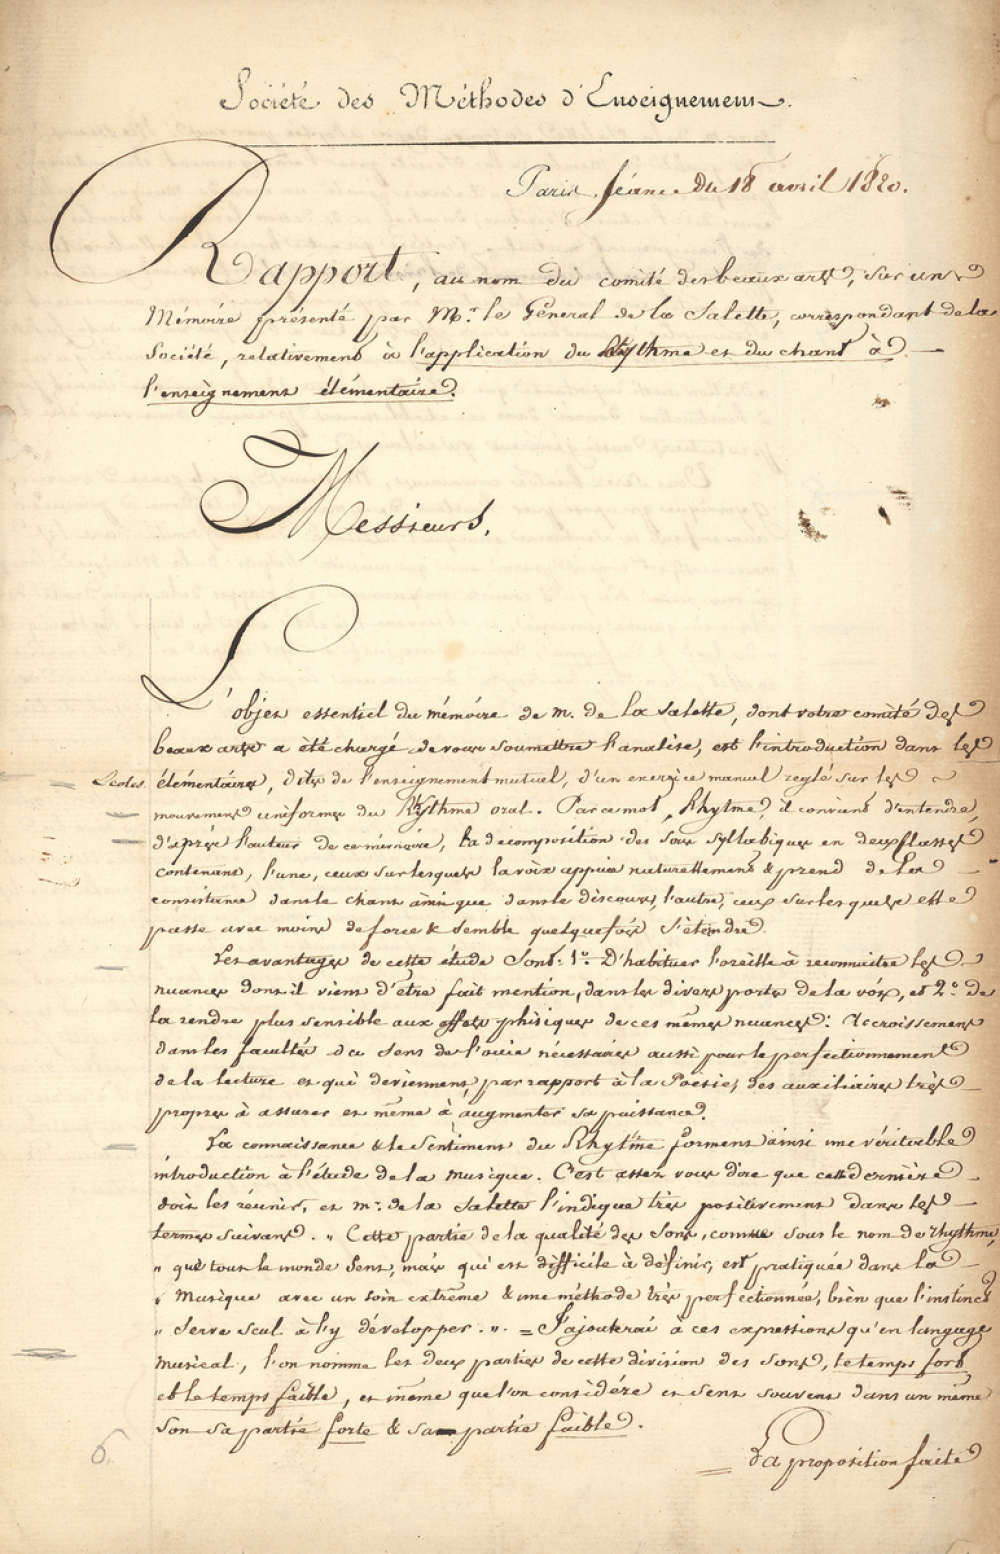 Société des Méthodes d'Enseignement.
Paris, séance du 18 avril 1820.
Rapport, au nom du comité des beaux arts, sur un
Mémoire présenté par Mr. le Général de la Salette, correspondant de la
Société, relativement à l'application du Rhythme et du chant à
l'enseignement élémentaire.
Messieurs,
L'objet essentiel du mémoire de m. de la Salette, dont votre comité des
beaux arts a été chargé de vous soumettre l'analise, est l'introduction dans les
Ecoles élémentaires, dites de l'enseignement mutuel, d'un exercice manuel reglé sur les
mouvemens uniformes du Rhythme oral. Par ce mot, Rhytme, il convient d'entendre,
d'après l'auteur de ce mémoire, la décomposition des sons syllabiques en deux classes
contenant, l'une, ceux sur lesquels la voix appuie naturellement & prend de la
consistance dans le chant ainsi que dans le discours, l'autre, ceux sur lesquels elle
passe avec moins de force & semble quelquefois s'éteindre.
Les avantages de cette étude sont: 1º. D'habituer l'oreille à reconnaitre les
nuances dont il vient d'être fait mention, dans les divers ports de la voix, et 2º. de
la rendre plus sensible aux effets phisiques de ces mêmes nuances: Accroissement
dans les facultés du sens de l'ouie nécessaires aussi pour le perfectionnement
de la lecture et qui deviennent, par rapport à la Poésie, des auxiliaires très
propres à assurer et même à augmenter sa puissance.
La connaissance & le sentiment du Rhytme forment ainsi une véritable
introduction à l'étude de la musique. C'est assez vous dire que cette dernière
doit les réunir, et mr. de la Salette l'indique très positivement dans les
termes suivans. " Cette partie de la qualité des sons, connue sous le nom de rhythme,
" que tout le monde sent, mais qui est difficile à définir, est pratiquée dans la
" Musique avec un soin extrême & une méthode très perfectionnée, bien que l'instinct
" serve seul à l'y développer. " = J'ajouterai à ces expressions qu'en langage
musical, l'on nomme les deux parties de cette division des sons, le temps fort
et le temps faible, et même que l'on considére et sent souvent dans un même
son sa partie forte & sa partie faible.
La proposition faite
6.